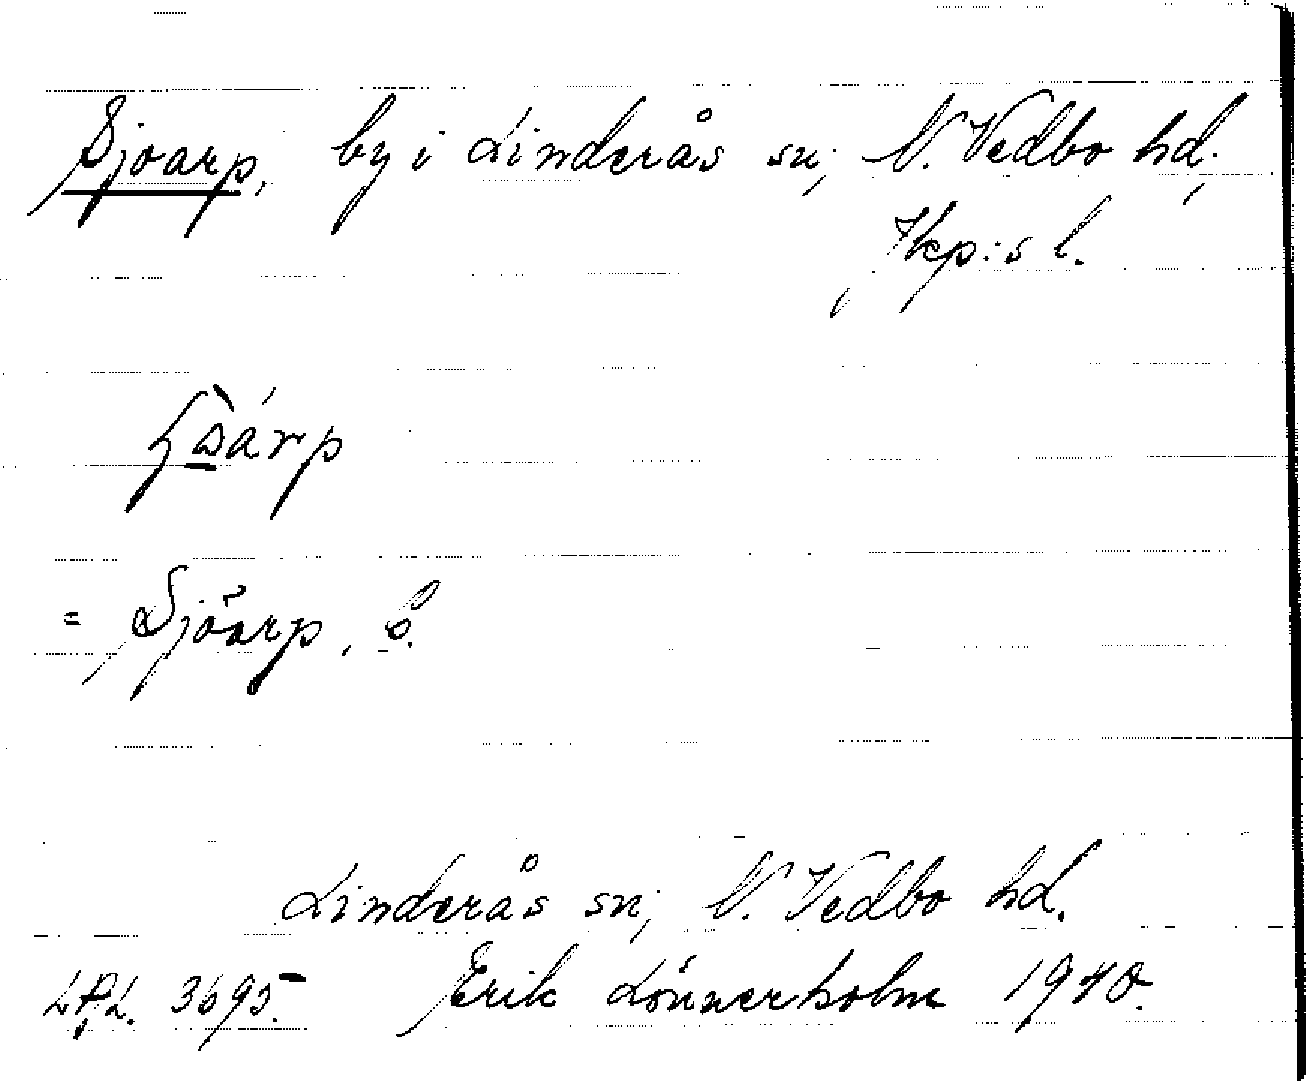 Sjoarp, by i Linderås sn, N. Vedbo hd,
Jkp:s l.
= Sjöarp, b.
Linderås sn, N. Vedbo hd.
L.P.L. 3695. Erik Lönnerholm 1940.